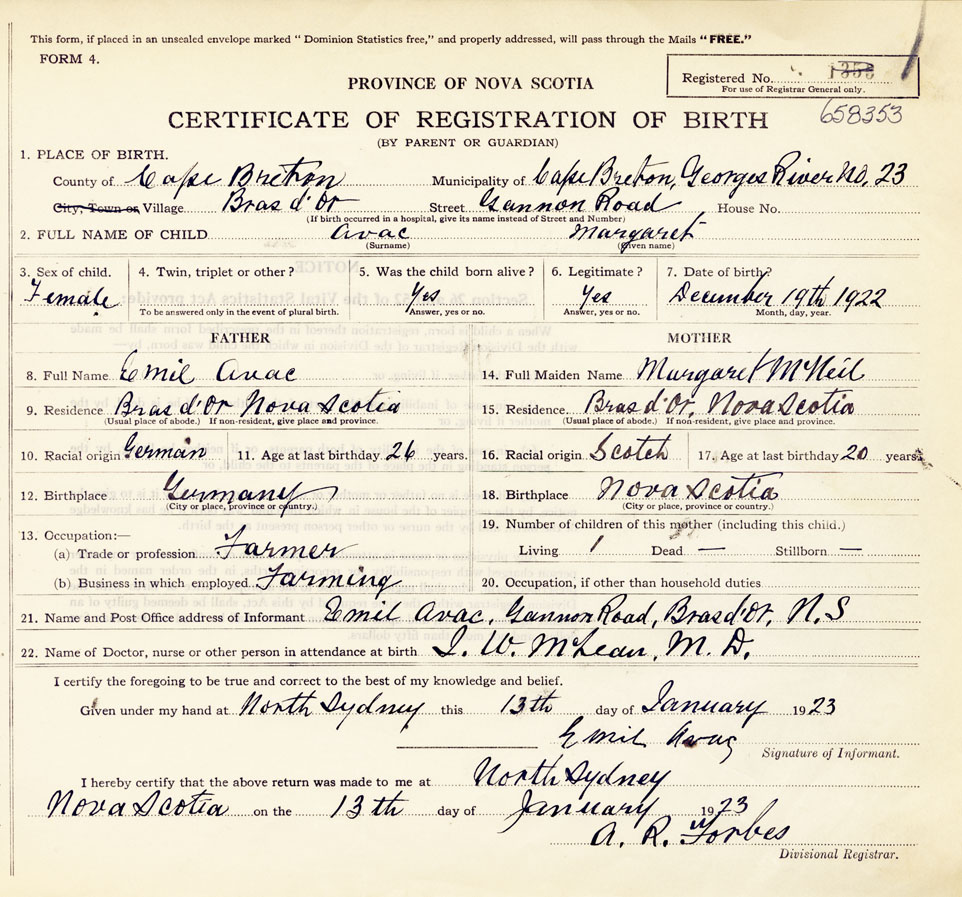 This form, if placed in an unsealed envelope marked “ Dominion Statistics free,” and properly addressed, will pass through the Mails “FREE.”
FORM 4.
Registered No. 1355
For use of Registrar General only.
PROVINCE OF NOVA SCOTIA
658353
CERTIFICATE OF REGISTRATION OF BIRTH
(BY PARENT OR GUARDIAN)
1. PLACE OF BIRTH.
County of Cape Breton Municipality of Cape Breton, Georges River No. 23
City, Town or Village Bras d'Or Street Gannon Road House No.
(If birth occurred in a hospital, give its name instead of Street and Number)
2. FULL NAME OF CHILD Avac Margaret
(Surname) (Given name)
3. Sex of child. 4. Twin, triplet or other? 5. Was the child born alive? 6. Legitimate? 7. Date of birth?
Female Yes Yes December 19th 1922
To be answered only in the event of plural birth. Answer, yes or no. Answer, yes or no. Month, day, year.
FATHER MOTHER
8. Full Name Emil Avac 14. Full Maiden Name Margaret McNeil
9. Residence Bras d'Or Nova Scotia 15. Residence Bras d'Or, Nova Scotia
(Usual place of abode.) If non-resident, give place and province. (Usual place of abode.) If non-resident, give place and province.
10. Racial origin German 11. Age at last birthday 26 years. 16. Racial origin Scotch 17. Age at last birthday 20 years.
12. Birthplace Germany 18. Birthplace Nova Scotia
(City or place, province or country.) (City or place, province or country.)
13. Occupation:— 19. Number of children of this mother (including this child.)
(a) Trade or profession Farmer Living 1 Dead — Stillborn —
(b) Business in which employed Farming 20. Occupation, if other than household duties
21. Name and Post Office address of Informant Emil Avac, Gannon Road, Bras d'Or, N.S
22. Name of Doctor, nurse or other person in attendance at birth L. W. McLean, M. D.
I certify the foregoing to be true and correct to the best of my knowledge and belief.
Given under my hand at North Sydney this 13th day of January 1923
Emil Avac
Signature of Informant.
I hereby certify that the above return was made to me at North Sydney
Nova Scotia on the 13th day of January 1923
A. R. Forbes
Divisional Registrar.